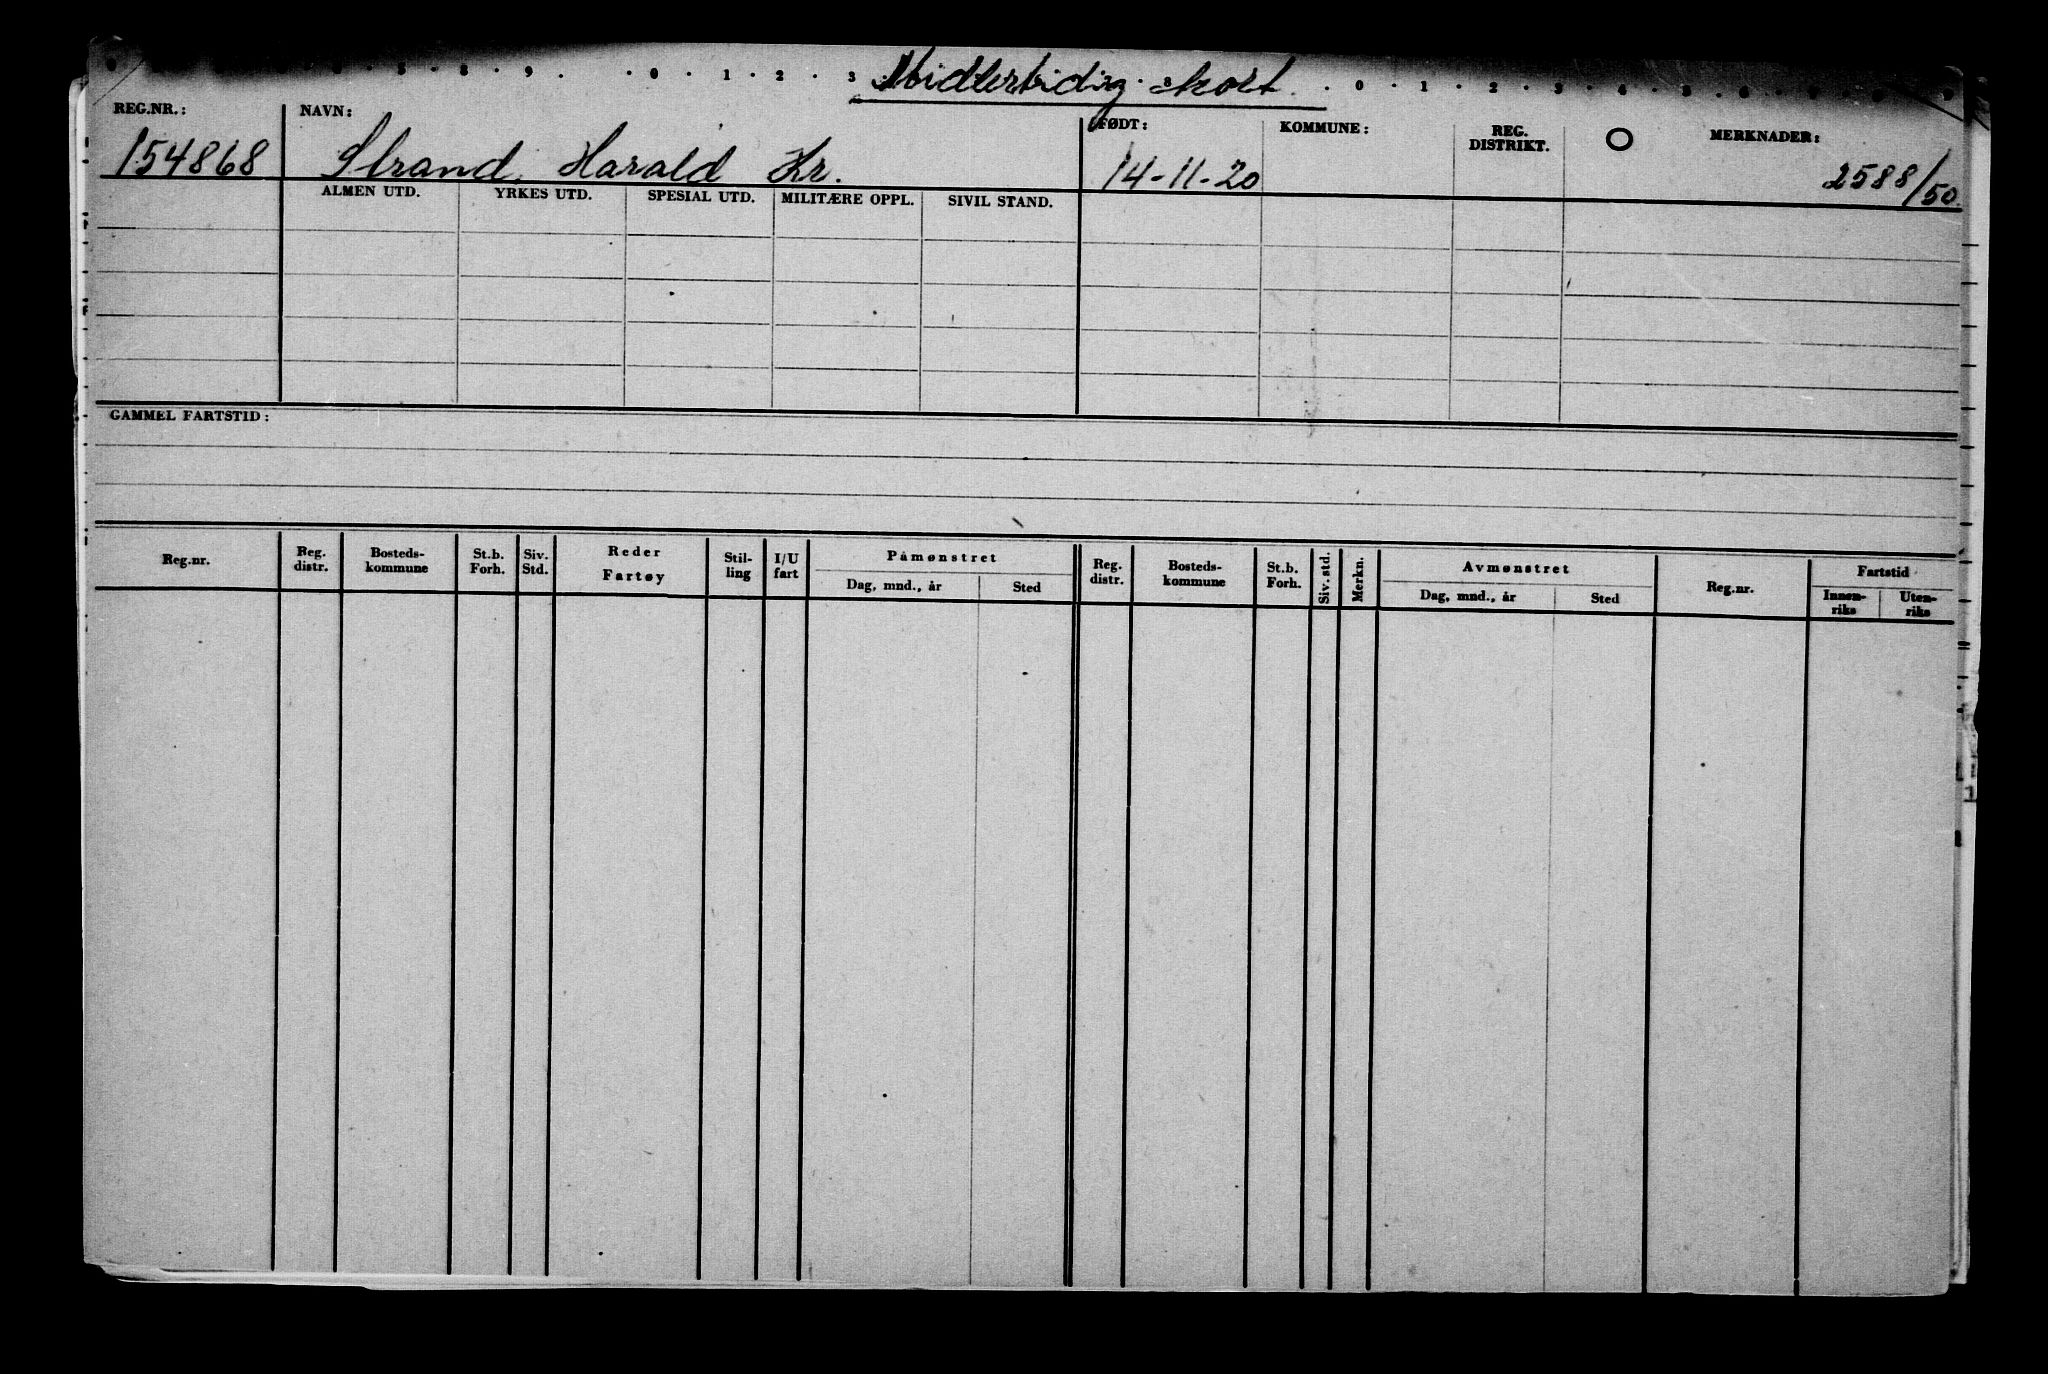 Midlertidig kort.
REG.NR.: NAVN: FØDT: KOMMUNE: REG. DISTRIKT. MERKNADER:
154868 Strand, Harald Kr. 14-11-20 2588/50.
ALMEN UTD. YRKES UTD. SPESIAL UTD. MILITÆRE OPPL. SIVIL STAND.
GAMMEL FARTSTID:
Reg.nr. Reg. distr. Bosteds-kommune St.b. Forh. Siv. Std. Reder Fartøy Stil-ling I/U fart Påmønstret Reg. distr. Bosteds-kommune St.b. Forh. Siv. std. Merkn. Avmønstret Reg.nr. Fartstid
Dag, mnd., år Sted Dag, mnd., år Sted Innen-riks Uten-riks